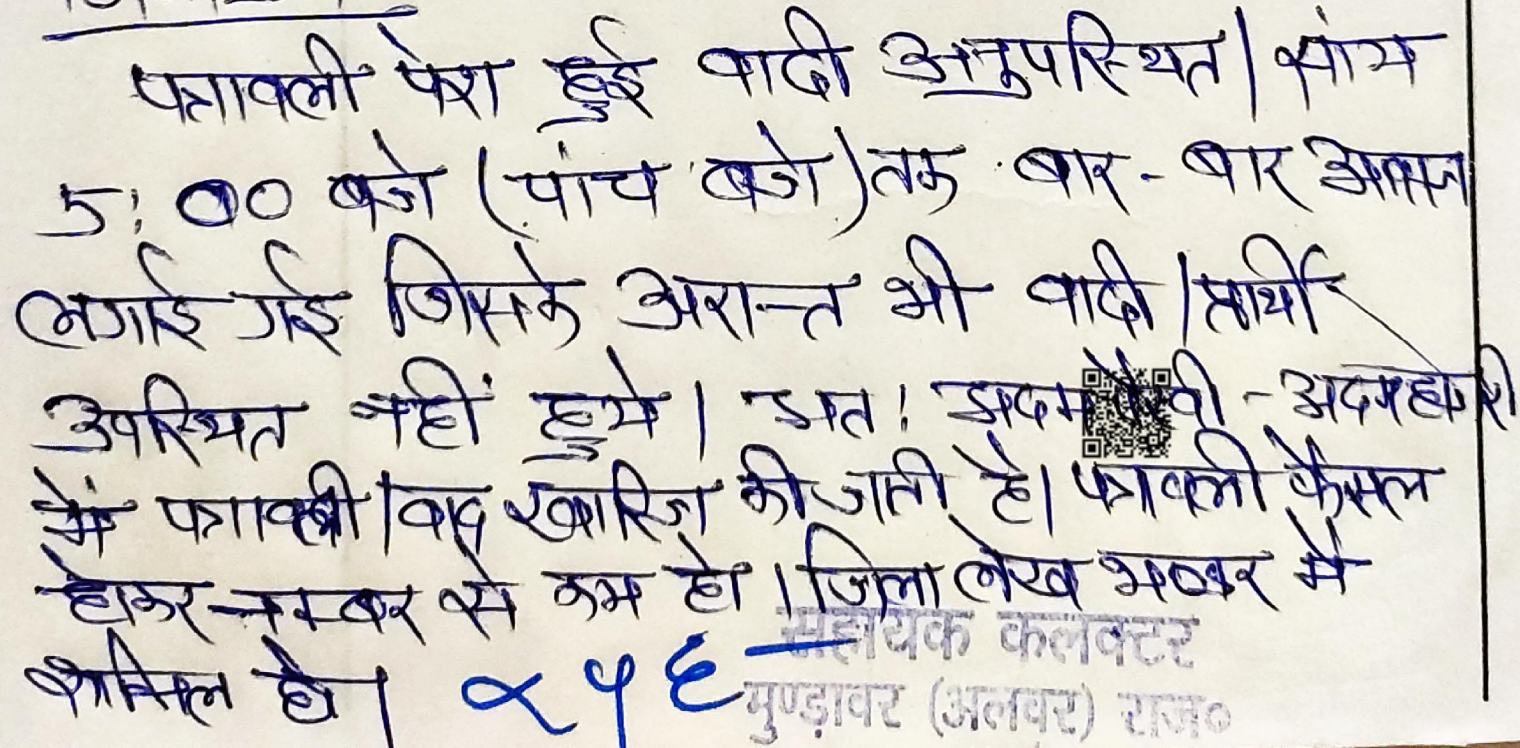 पत्रावली पेश हुई वादी अनुपस्थित। सांय
5:00 बजे (पांच बजे) तक बार-बार आवाज
लगाई गई जिसके उपरान्त भी वादी/प्रार्थी
उपस्थित नहीं हुये। अतः अदम पैरवी-अदमहाजरी
में पत्रावली/वाद खारिज की जाती है। पत्रावली फैसल
होकर नम्बर से कम हो। जिला लेख भण्डार में
दाखिल हो।
सहायक कलक्टर
मुण्डावर (अलवर) राज०